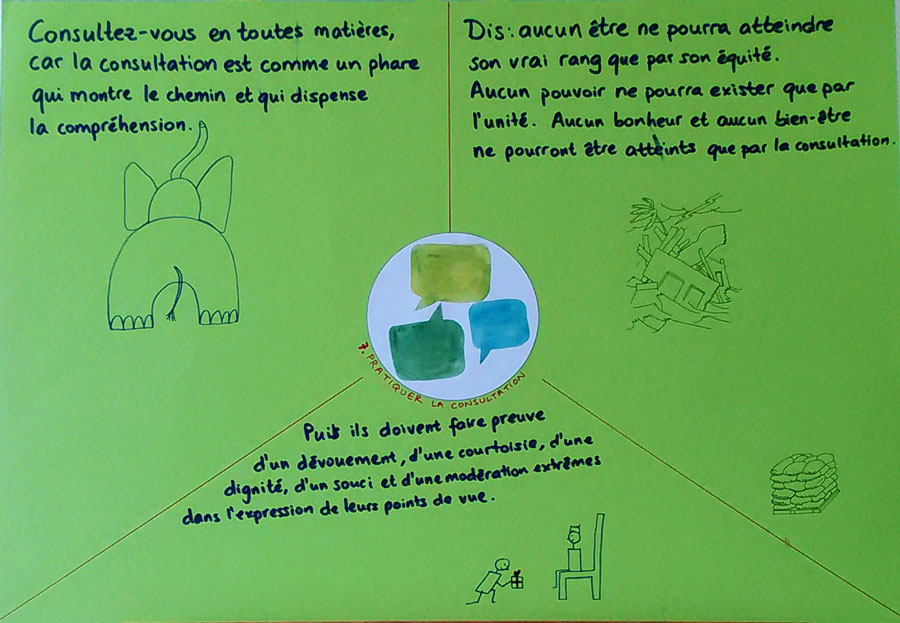 Consultez-vous en toutes matières,
car la consultation est comme un phare
qui montre le chemin et qui dispense
la compréhension.
Dis: aucun être ne pourra atteindre
son vrai rang que par son équité.
Aucun pouvoir ne pourra exister que par
l'unité. Aucun bonheur et aucun bien-être
ne pourront être atteints que par la consultation.
7. PRATIQUER LA CONSULTATION
Puis ils doivent faire preuve
d'un dévouement, d'une courtoisie, d'une
dignité, d'un souci et d'une modération extrêmes
dans l'expression de leurs points de vue.